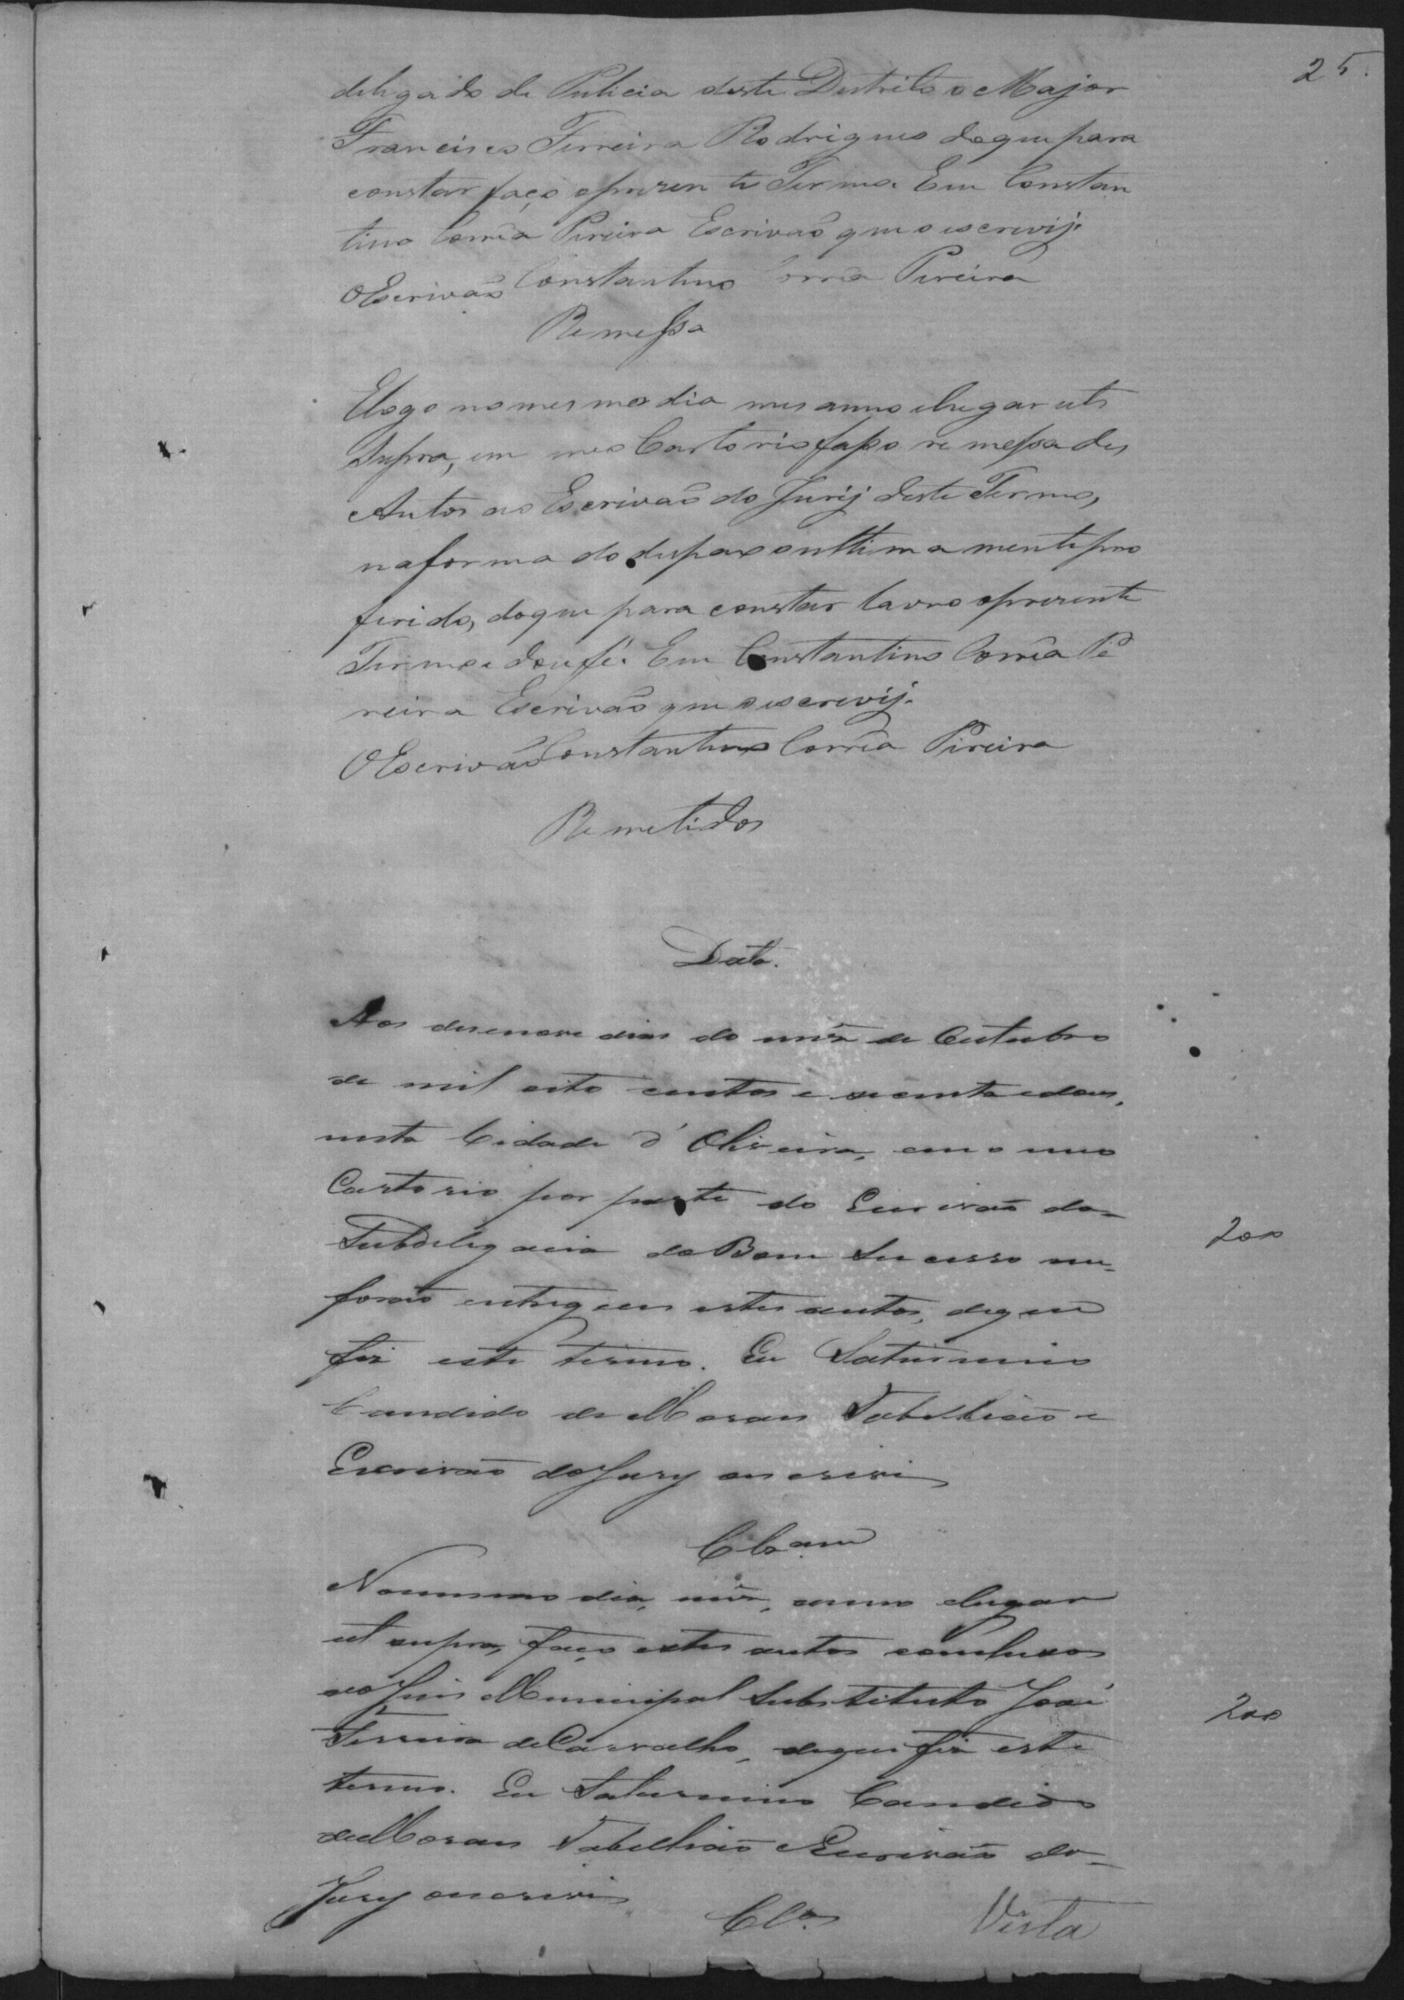 25.
delegado de Policia deste Destrito o Major
Francisco Ferreira Rodrigues doque para
constar faço opresente Termo. Eu Constan
tino Corrêa Pereira Escrivaõ que o escrevij.
OEscrivaõ Constantino Corrêa Pereira
Remessa
Elogo nomesmo dia mes anno elugar ut
Supra, em meo Cartorio faço remessa des
Autos ao Escrivaõ do Jurij deste Termo,
naforma do despaxo ulttimamente pro
ferido, doque para constar lavro opresente
Termo e dou fé. Eu Constantino Corrêa Pe
reira Escrivaõ que o escrevij.
OEscrivaõ Constantino Corrêa Pereira
Remetidos
Data.
Aos desenove dias do mês de Outubro
de mil oito centos e secenta e dous,
nesta Cidade d'Oliveira, em o meo
Cartorio por parte do Escrivaõ da
Subdelegacia do Bom Sucesso me
200
foraõ entregues estes autos, de que
fiz este termo. Eu Saturnino
Candido de Moraes Tabelliaõ e
Escrivaõ do Jury escrevi
Clsam
Nomesmo dia, mês, anno elugar
ut supra, faço estes autos concluzos
ao Juis Municipal Substituto José
200
Ferreira de Carvalho, de que fiz este
termo. Eu Saturnino Candido
de Moraes Tabelliaõ e Escrivaõ do
Jury escrevi
Clos. Vista